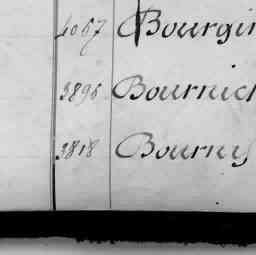 4067 Bourgin
3896 Bournich
3818 Bournis